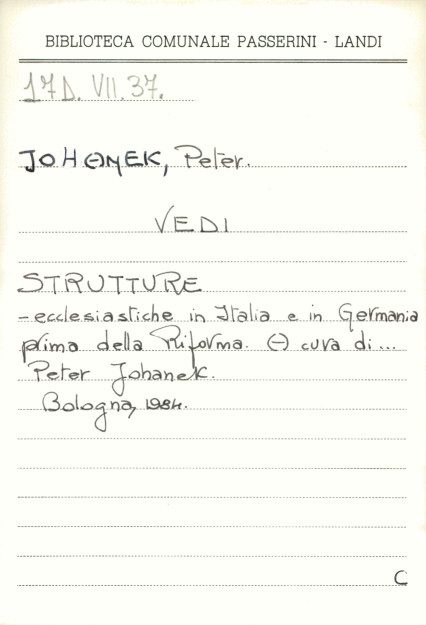 BIBLIOTECA COMUNALE PASSERINI - LANDI
17D. VII. 37.
JOHANEK, Peter.
VEDI
STRUTTURE
- ecclesiastiche in Italia e in Germania
prima della Riforma. A cura di...
Peter Johanek.
Bologna, 1984.
C